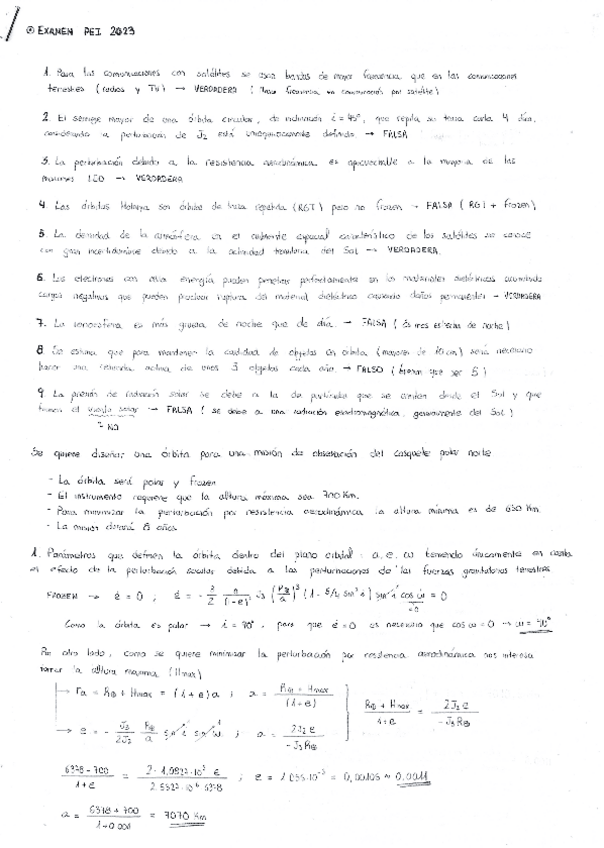 ⊛ EXAMEN PEI 2023
1. Para las comunicaciones con satélites se usan bandas de mayor frecuencia que en las comunicaciones
terrestres (radios y TV) → VERDADERA ( frecuencia comunicación por satélite)
2. El semieje mayor de una órbita circular, de inclinación i = 45°, que repita su traza cada 4 días,
considerando la perturbación de J2 está unívocamente definido → FALSA
3. La perturbación debida a la resistencia aerodinámica es aprovechable a la mayoría de las
misiones LEO → VERDADERA
4. Las órbitas Molniya son órbitas de traza repetida (RGT) pero no frozen → FALSA (RGT + Frozen)
5. La densidad de la atmósfera en el ambiente espacial característico de los satélites se conoce
con gran incertidumbre debido a la actividad del Sol → VERDADERA.
6. Los electrones con alta energía pueden penetrar perfectamente en los materiales dieléctricos acumulando
cargas negativas que pueden provocar ruptura del material dieléctrico causando daños permanentes → VERDADERA
7. La ionosfera es más gruesa de noche que de día. → FALSA (Es más estrecha de noche)
8. Se estima que para mantener la cantidad de objetos en órbita (mayores de 10 cm) será necesario
hacer una retirada activa de unos 3 objetos cada año. → FALSO ( que ser 5 )
9. La presión de radiación solar se debe a la de partículas que se emiten desde el Sol y que
forman el viento solar → FALSA ( se debe a una radiación electromagnética, generalmente del Sol )
NO
Se quiere diseñar una órbita para una misión de observación del casquete polar norte
- La órbita será polar y frozen
- El instrumento requiere que la altura máxima sea 700 Km.
- Para minimizar la perturbación por resistencia aerodinámica la altura mínima es de 650 Km.
- La misión durará 8 años.
1. Parámetros que definen la órbita dentro del plano orbital: a, e, ω teniendo únicamente en cuenta
el efecto de la perturbación secular debida a las perturbaciones de las fuerzas gravitatorias terrestres
FROZEN → ė = 0 ; ė = - 3/2 n/(1-e²)² J3 (R⊕/a)³ (1 - 5/4 sin² i) sin i cos ω = 0
= 0
Como la órbita es polar → i = 90°, para que ė = 0 es necesario que cos ω = 0 → ω = 90°
Por otro lado, como se quiere minimizar la perturbación por resistencia aerodinámica nos interesa
tomar la altura máxima (Hmax)
→ ra = R⊕ + Hmax = (1+e) a ; a = (R⊕ + Hmax)/(1+e)
→ e = - J3/2J2 R⊕/a sin i sin ω ; a = 2J2 e/-J3 R⊕
(R⊕ + Hmax)/(1+e) = 2J2 e/-J3 R⊕
e = 1.055·10⁻³ = 0,00105 ≈ 0.0011
a = (6378 + 700)/(1+0.001) = 7070 Km